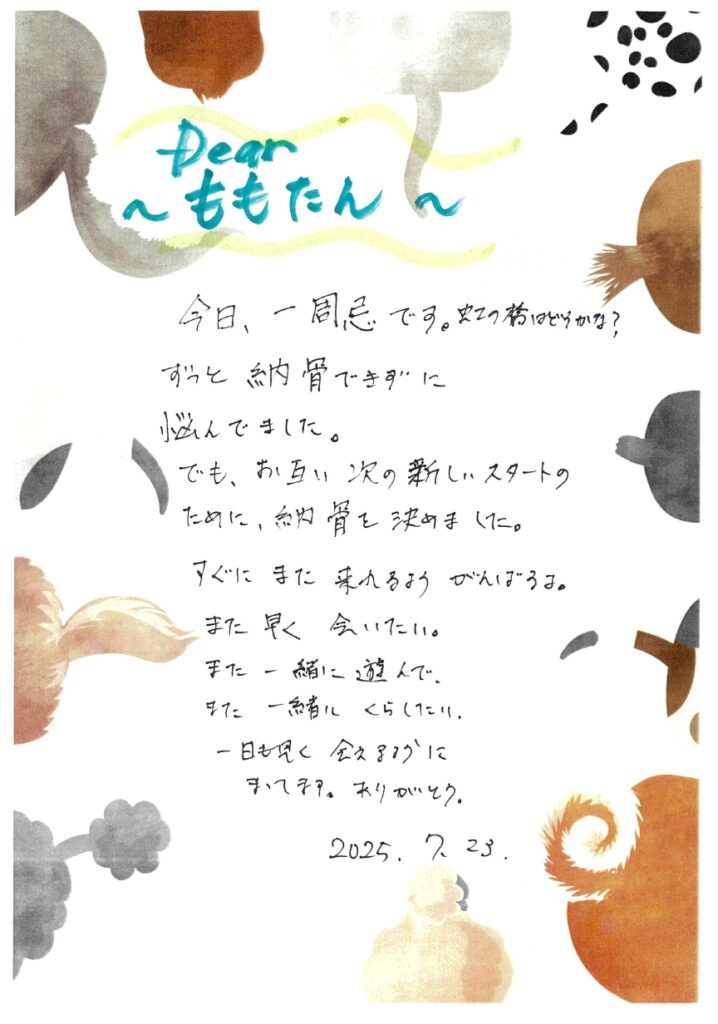 Dear
～ももたん～
今日、一周忌です。虹の橋はどうかな？
ずっと納骨できずに
悩んでました。
でも、お互い次の新しいスタートの
ために、納骨を決めました。
すぐにまた来れるようがんばるよ。
また早く会いたい。
また一緒に遊んで、
また一緒にくらしたい。
一日も早く会えるように
まってます。ありがとう。
2025.7.23.